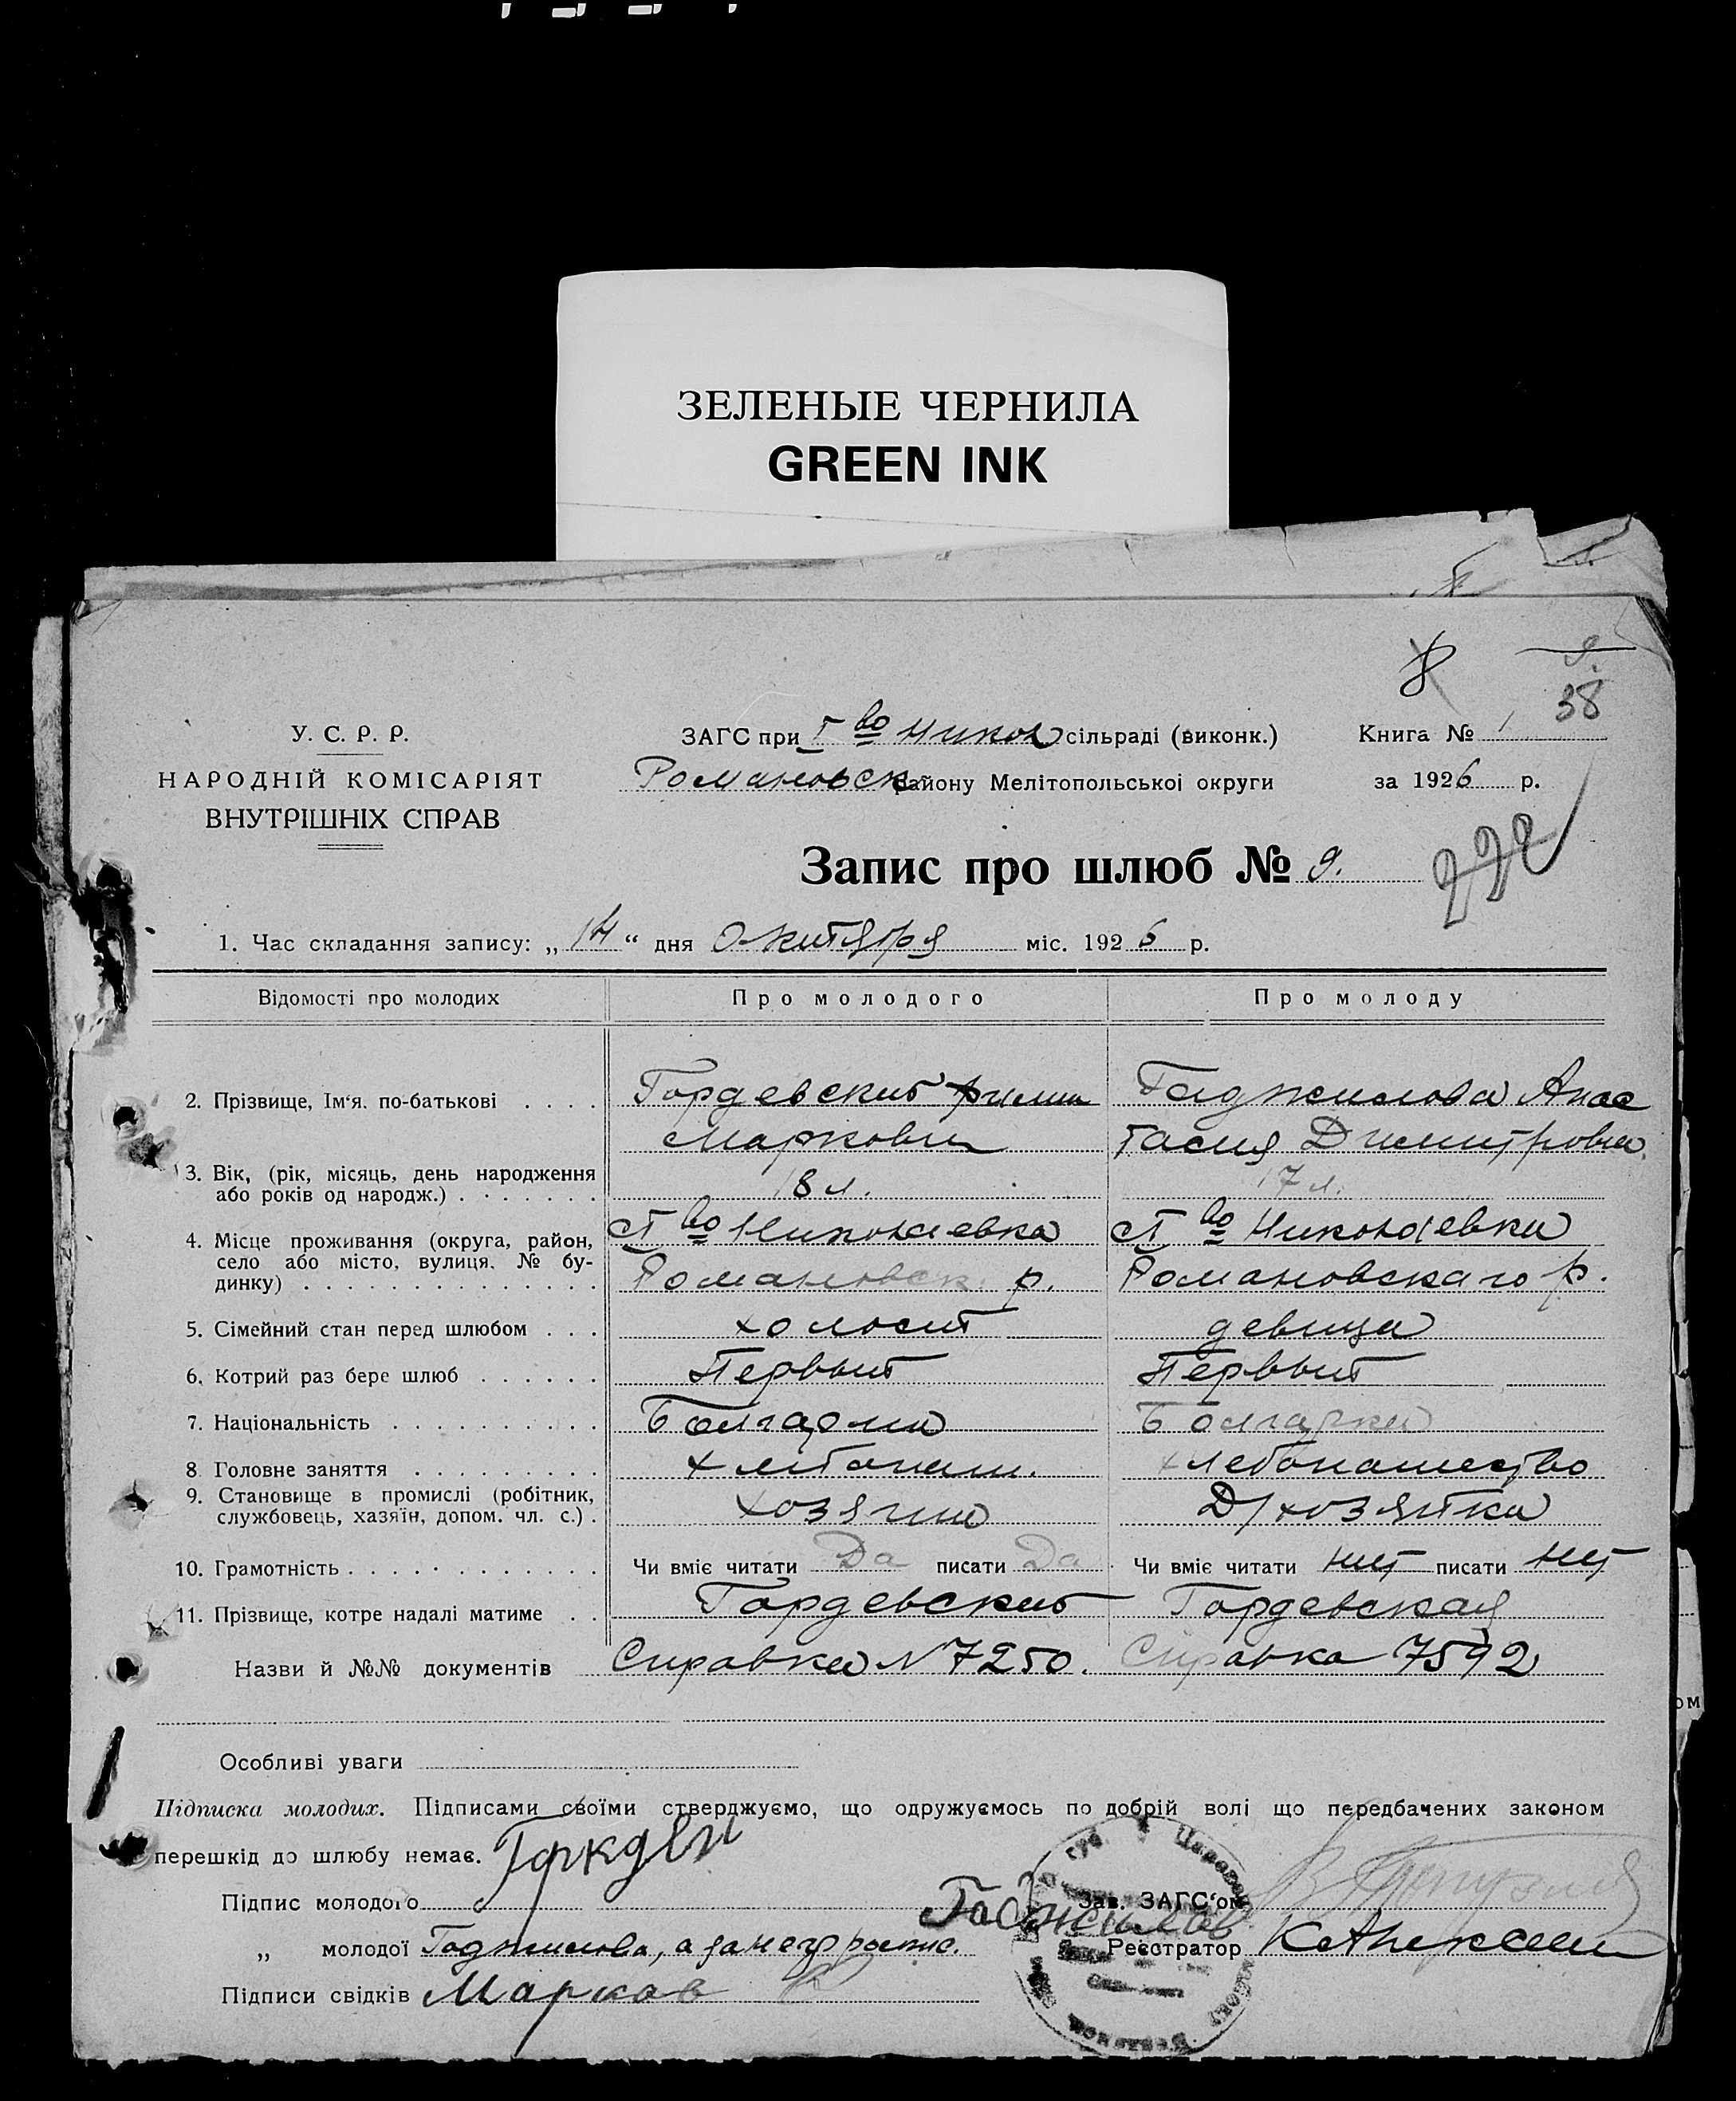 ЗЕЛЕНЫЕ ЧЕРНИЛА
GREEN INK
9.
38
8
У. С. Р. Р.
НАРОДНІЙ КОМІСАРІЯТ
ВНУТРІШНІХ СПРАВ
ЗАГС при І во Никол сільраді (виконк.)
Романовск району Мелітопольської округи
Книга № 1
за 1926 р.
Запис про шлюб № 9.
222
1. Час складання запису: „14“ дня Октября міс. 1926 р.
Відомості про молодих Про молодого Про молоду
2. Прізвище, Ім‘я, по-батькові Гордевский Гаджилова Анас
Маркови тасия Димитровна
3. Вік, (рік, місяць, день народження
або років од народж.) 18 л. 17 л.
4. Місце проживання (округа, район, во Николаевка во Николаевка
село або місто, вулиця, № бу-
динку) Романовск. р. Романовскаго р.
5. Сімейний стан перед шлюбом холост девица
6. Котрий раз бере шлюб Первый Первый
7. Національність Болгарин Болгарка
8 Головне заняття хлебопаш. хлебопашество
9. Становище в промислі (робітник,
службовець, хазяїн, допом. чл. с.) хозяин Д/хозяйка
10. Грамотність Чи вміє читати Да писати Да Чи вміє читати нет писати нет
11. Прізвище, котре надалі матиме Гордевский Гордевская
Назви й №№ документів Справка N 7250. Справка 7592
Особливі уваги
Підписка молодих. Підписами своїми стверджуємо, що одружуємось по добрій волі що передбачених законом
перешкід до шлюбу немає.
Підпис молодого
Зав. ЗАГС‘ом
„ молодої Гаджилова, а за негр роспис. Гаджилов
Реєстратор
Підписи свідків Марков